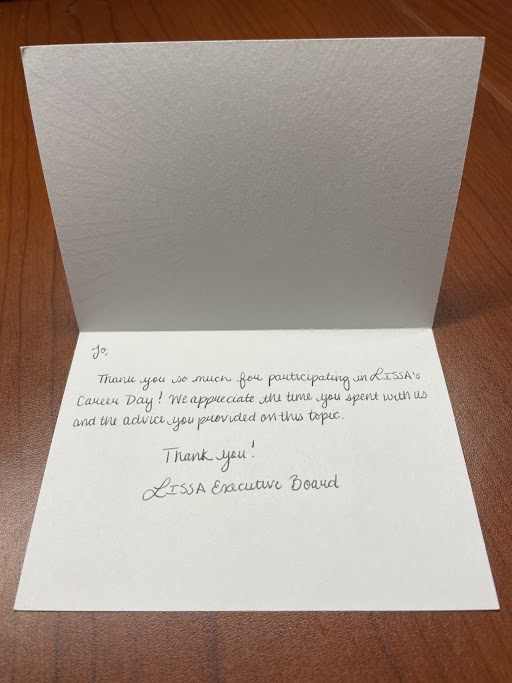 Jo,
Thank you so much for participating in LISSA's
Career Day! We appreciate the time you spent with us
and the advice you provided on this topic.
Thank you!
LISSA Executive Board